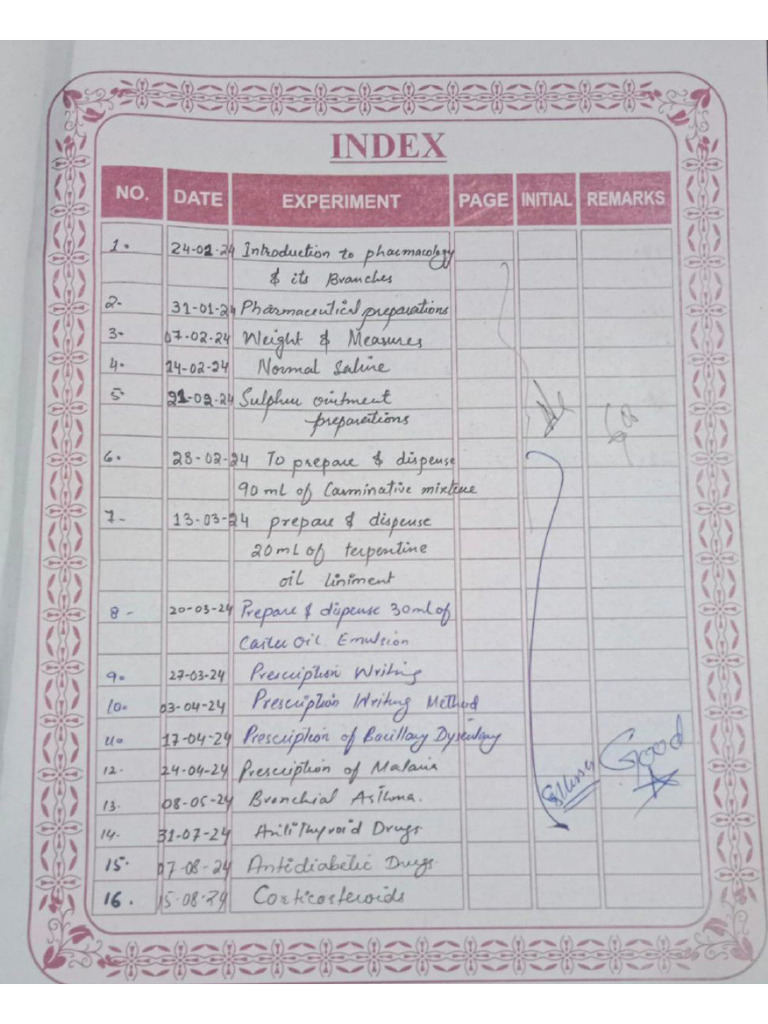 INDEX
NO. DATE EXPERIMENT PAGE INITIAL REMARKS
1. 24-01-24 Introduction to pharmacology
& its Branches
2- 31-01-24 Pharmaceutical preparations
3. 07-02-24 Weight & Measures
4. 14-02-24 Normal Saline
5. 21-02-24 Sulphur ointment
preparations
6. 28-02-24 To prepare & dispense
90 ml of Carminative mixture
7- 13-03-24 prepare & dispense
20 mL of terpentine
oil liniment
8- 20-03-24 Prepare & dispense 30 ml of
Caster Oil Emulsion
9. 27-03-24 Prescription Writing
10. 03-04-24 Prescription Writing Method
11. 17-04-24 Prescription of Bacillary Dysentary
12. 24-04-24 Prescription of Malaria
Good
13. 08-05-24 Bronchial Asthma.
14. 31-07-24 Antithyroid Drugs
15. 07-08-24 Antidiabetic Drugs
16. 15-08-24 Corticosteroids